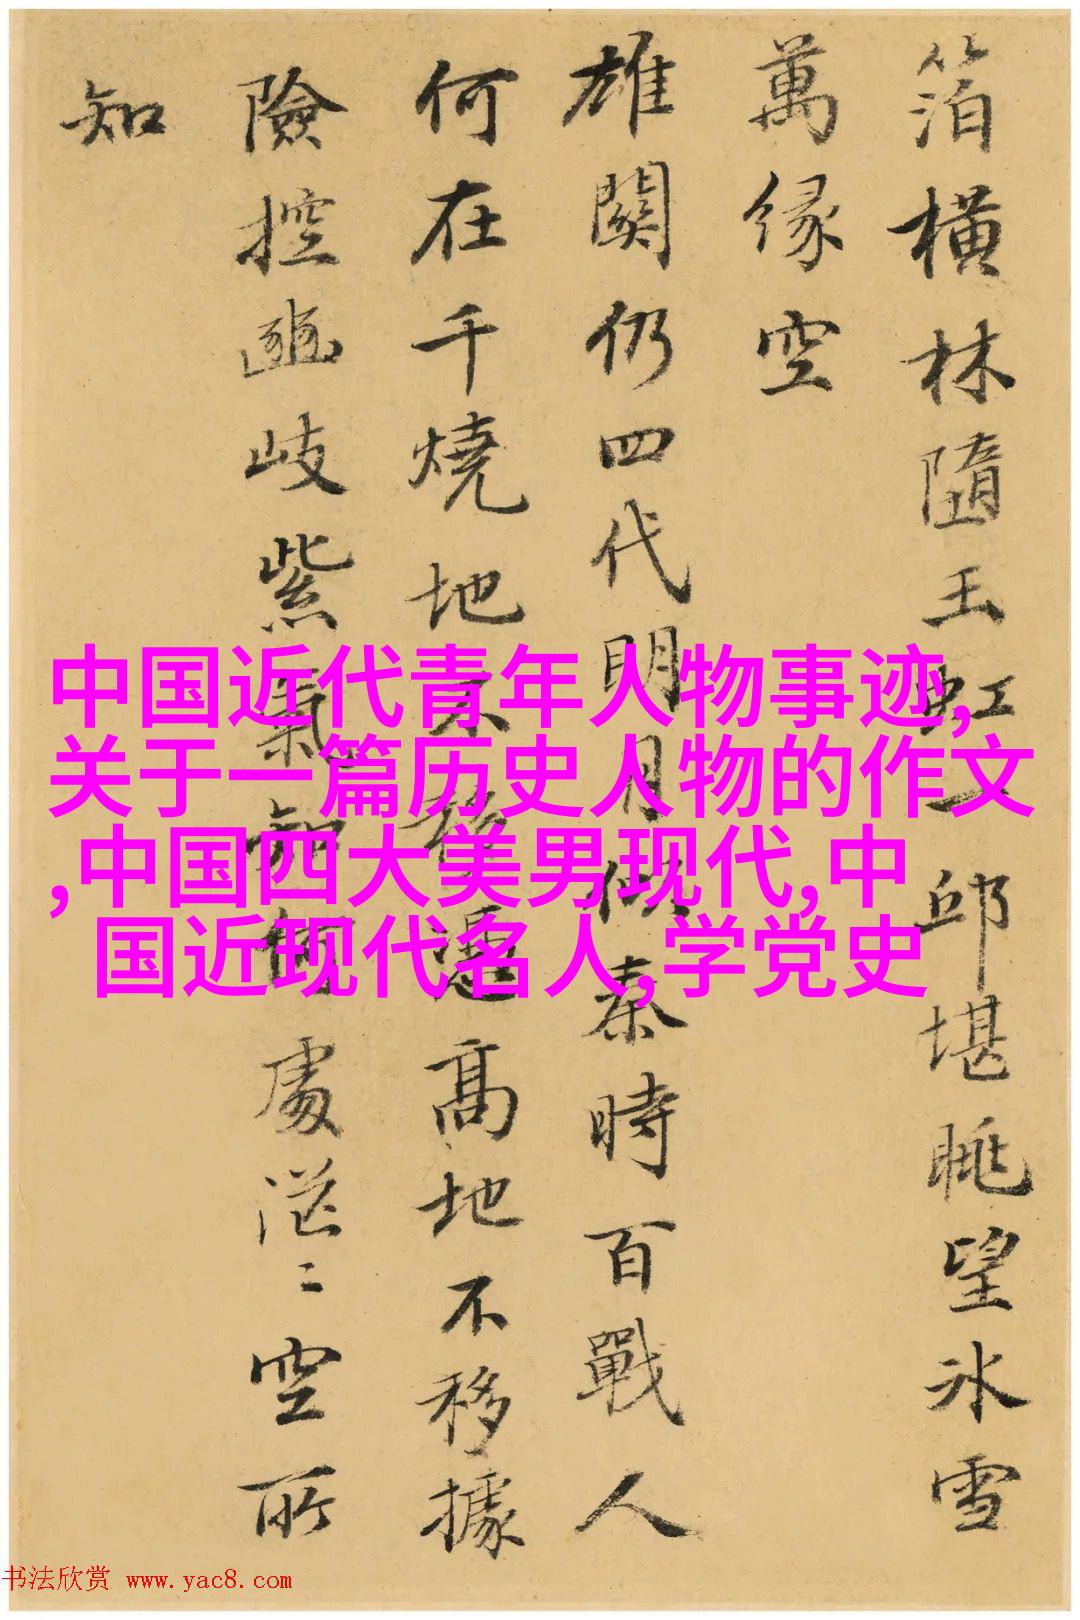 箔橫林隨玉虹一邱堪眺望冰雪
萬緣空
雄関仍四代明月似秦時百戰人
何在千燒地不移憑高地不移據
險控豳岐紫氣知何處茫〻空所
知
中国近代青年人物事迹,
关于一篇历史人物的作文
,中国四大美男现代,中
国近现代名人,学党史
书法欣赏 www.yac8.com